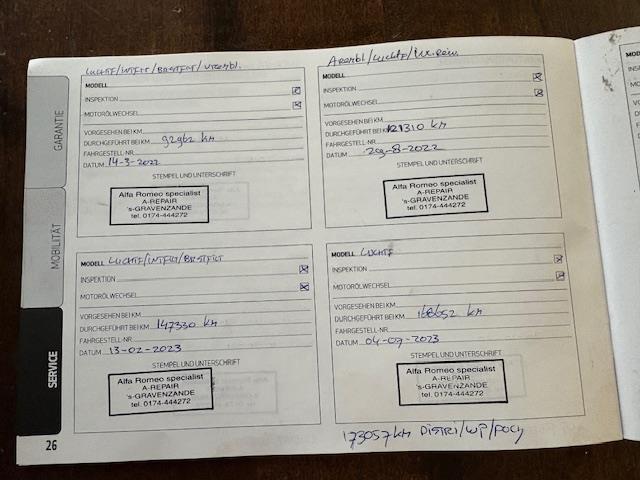 GARANTIE
MOBILITÄT
SERVICE
26
LUCHTF/INTFILT/BRSTFILT/VREMBL.
MODELL
INSPEKTION
MOTORÖLWECHSEL
VORGESEHEN BEI KM
DURCHGEFÜHRT BEI KM 92962 KM
FAHRGESTELL-NR.
DATUM 14-3-2022
STEMPEL UND UNTERSCHRIFT
Alfa Romeo specialist
A-REPAIR
's-GRAVENZANDE
tel. 0174-444272
MODELL
INSPEKTION
MOTORÖLWECHSEL
VORGESEHEN BEI KM
DURCHGEFÜHRT BEI KM 121310 KM
FAHRGESTELL-NR.
DATUM 29-8-2022
STEMPEL UND UNTERSCHRIFT
Alfa Romeo specialist
A-REPAIR
's-GRAVENZANDE
tel. 0174-444272
MODELL LUCHTF/INTFILT/BRSTFILT
INSPEKTION
MOTORÖLWECHSEL
VORGESEHEN BEI KM
DURCHGEFÜHRT BEI KM 147330 KM
FAHRGESTELL-NR.
DATUM 13-02-2023
STEMPEL UND UNTERSCHRIFT
Alfa Romeo specialist
A-REPAIR
's-GRAVENZANDE
tel. 0174-444272
MODELL LUCHTF
INSPEKTION
MOTORÖLWECHSEL
VORGESEHEN BEI KM
DURCHGEFÜHRT BEI KM 168652 KM
FAHRGESTELL-NR.
DATUM 04-07-2023
STEMPEL UND UNTERSCHRIFT
Alfa Romeo specialist
A-REPAIR
's-GRAVENZANDE
tel. 0174-444272
173057 KM DISTRI/WP/POLY